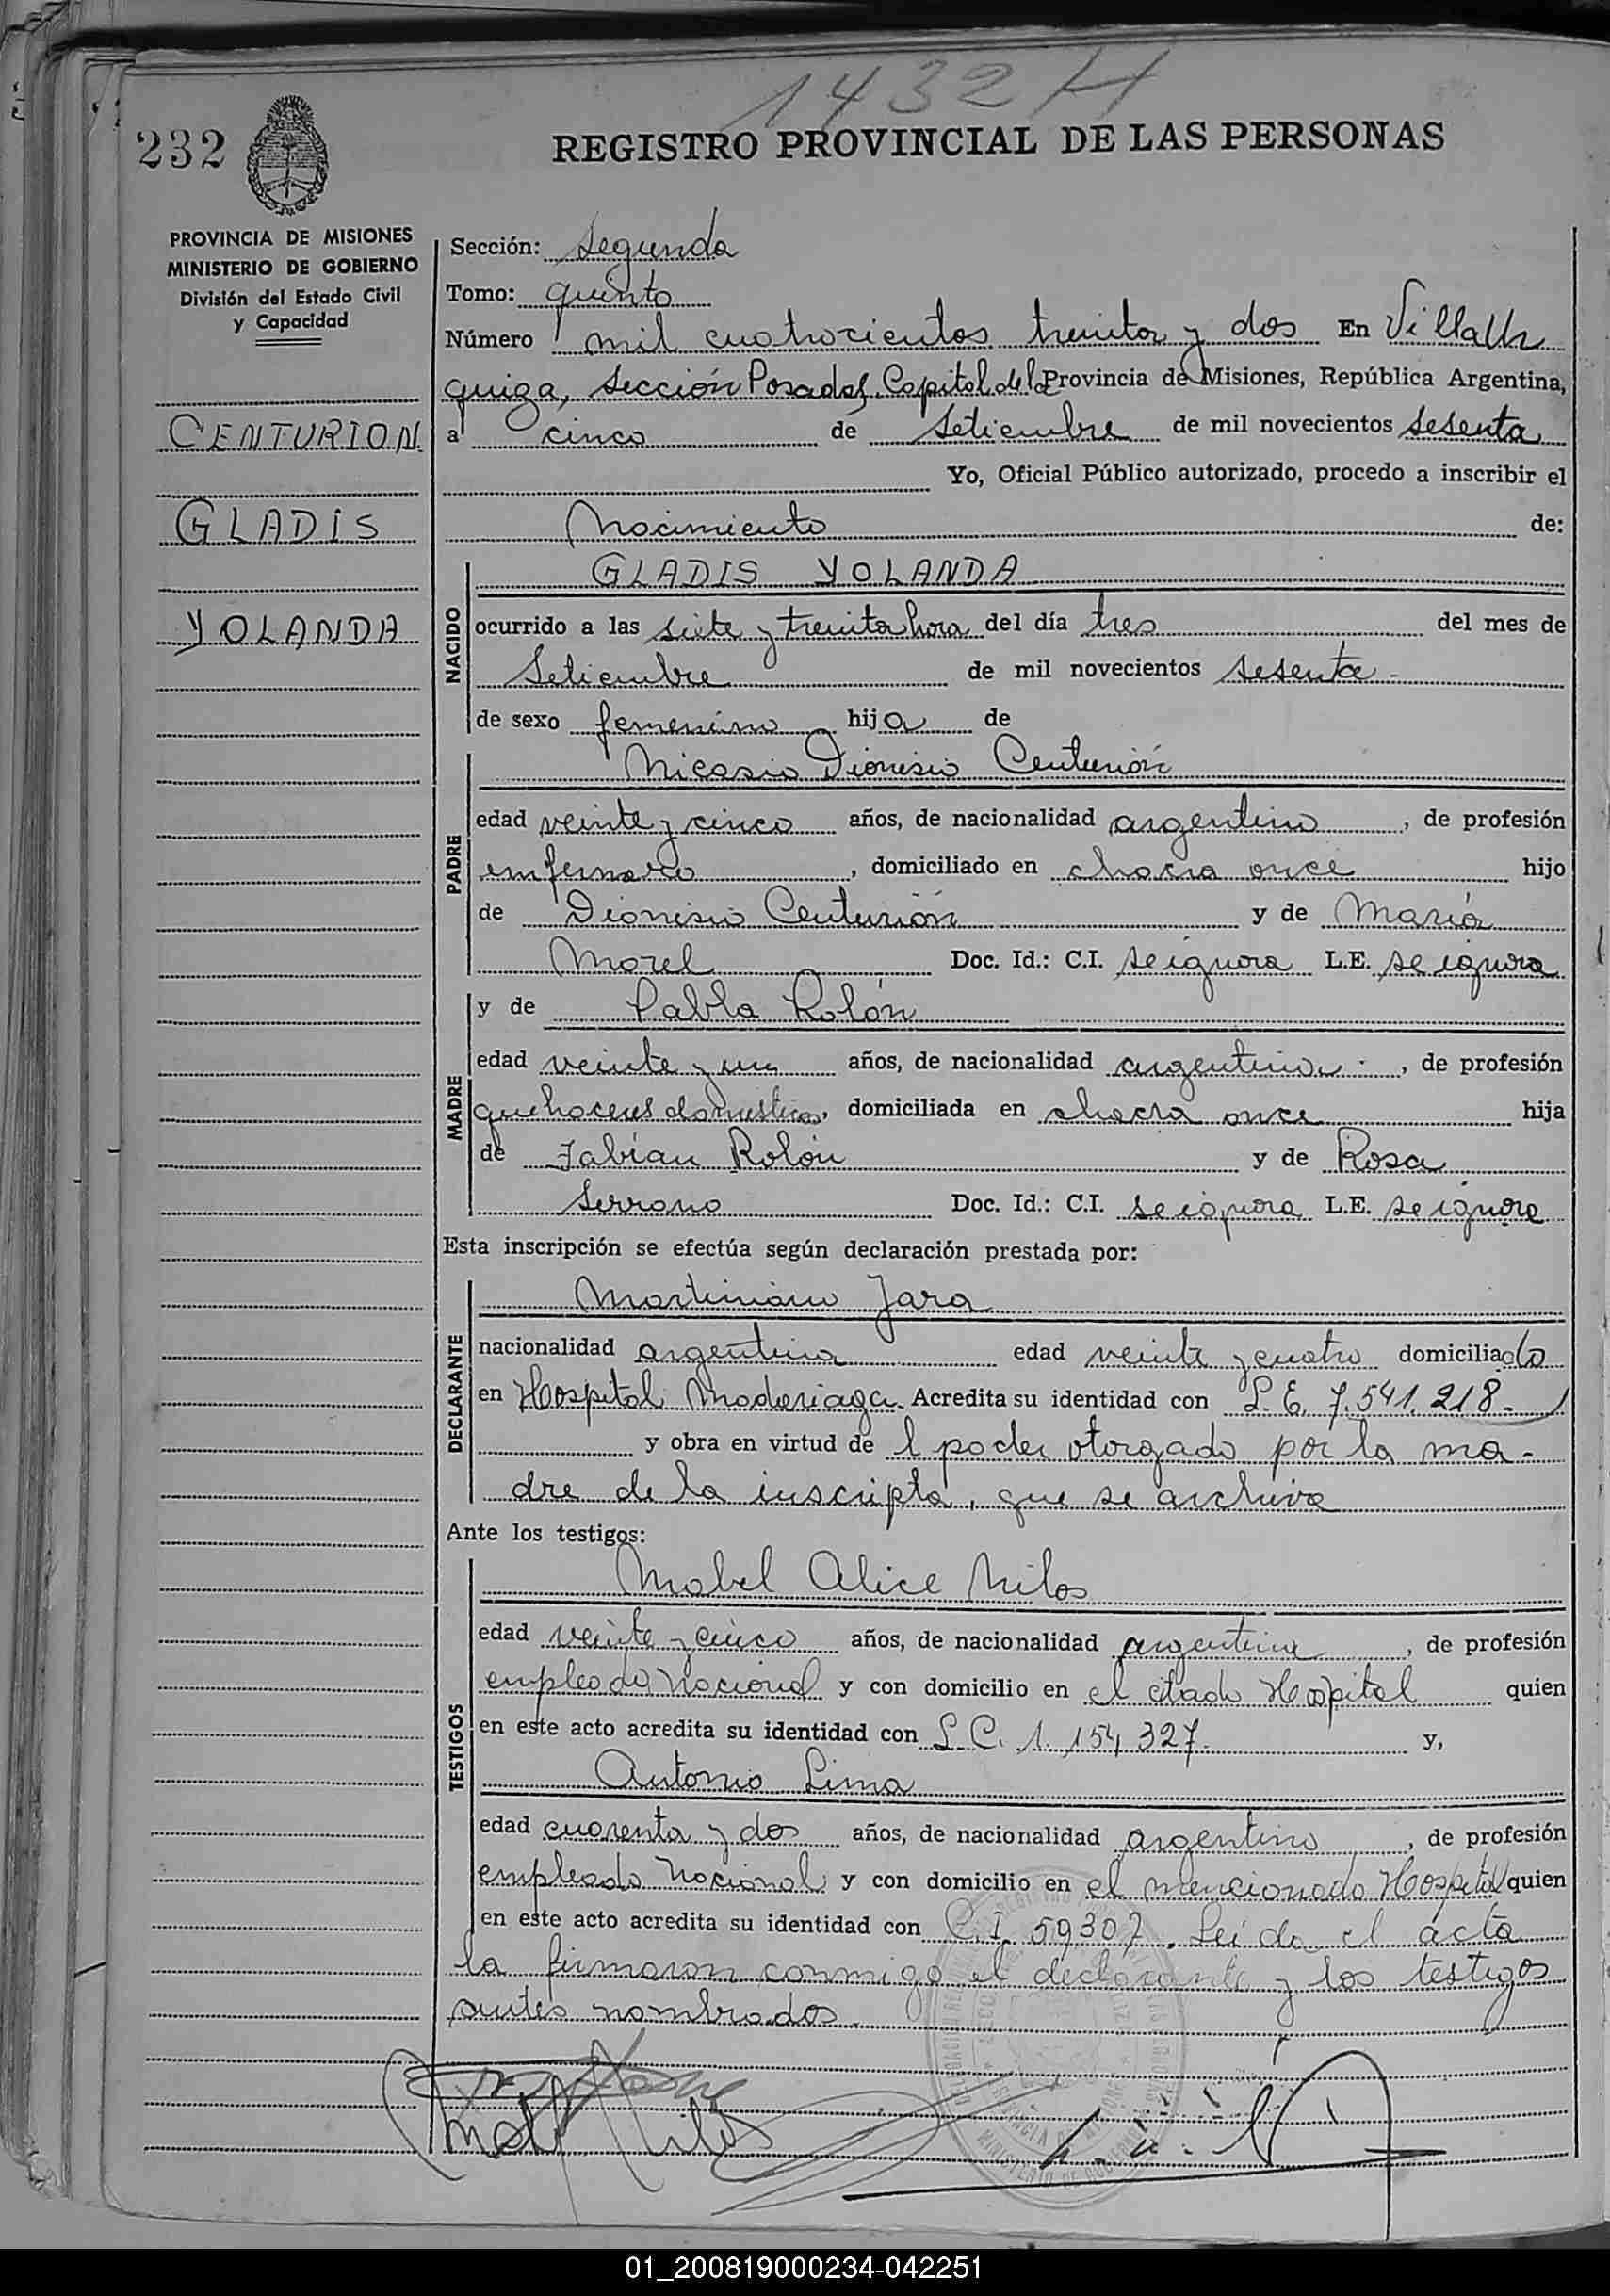 1432 H
232
REGISTRO PROVINCIAL DE LAS PERSONAS
PROVINCIA DE MISIONES
MINISTERIO DE GOBIERNO
División del Estado Civil
y Capacidad
CENTURION
GLADIS
YOLANDA
Sección: segunda
Tomo: quinto
Número mil cuatrocientos treinta y dos En Villa Ur
quiza, sección Posadas, Capital de la Provincia de Misiones, República Argentina,
a cinco de Setiembre de mil novecientos sesenta
Yo, Oficial Público autorizado, procedo a inscribir el
Nacimiento de:
NACIDO
GLADIS YOLANDA
ocurrido a las siete y treinta hora del día tres del mes de
Setiembre de mil novecientos sesenta
de sexo femenino hija de
PADRE
Nicasio Dionisio Centurión
edad veinte y cinco años, de nacionalidad argentino, de profesión
enfermero, domiciliado en chacra once hijo
de Dionisio Centurión y de María
Morel Doc. Id.: C.I. se ignora L.E. se ignora
MADRE
y de Pabla Rolón
edad veinte y un años, de nacionalidad argentina, de profesión
quehaceres domesticos, domiciliada en chacra once hija
de Fabián Rolón y de Rosa
Serrano Doc. Id.: C.I. se ignora L.E. se ignora
Esta inscripción se efectúa según declaración prestada por:
DECLARANTE
Martiniano Jara
nacionalidad argentina edad veinte y cuatro domiciliado
en Hospital Madariaga. Acredita su identidad con L.E. 7.541.218-
y obra en virtud de l poder otorgado por la ma-
dre de la inscripta, que se archiva
Ante los testigos:
TESTIGOS
Mabel Alice Milos
edad veinte y cinco años, de nacionalidad argentina, de profesión
empleada Nacional y con domicilio en el citado Hospital quien
en este acto acredita su identidad con L.C. 1.154.327- y,
Antonio Lima
edad cuarenta y dos años, de nacionalidad argentino, de profesión
empleado Nacional y con domicilio en el mencionado Hospital quien
en este acto acredita su identidad con C.I. 59307. Leída el acta
la firmaron conmigo el declarante y los testigos
antes nombrados.
01_200819000234-042251